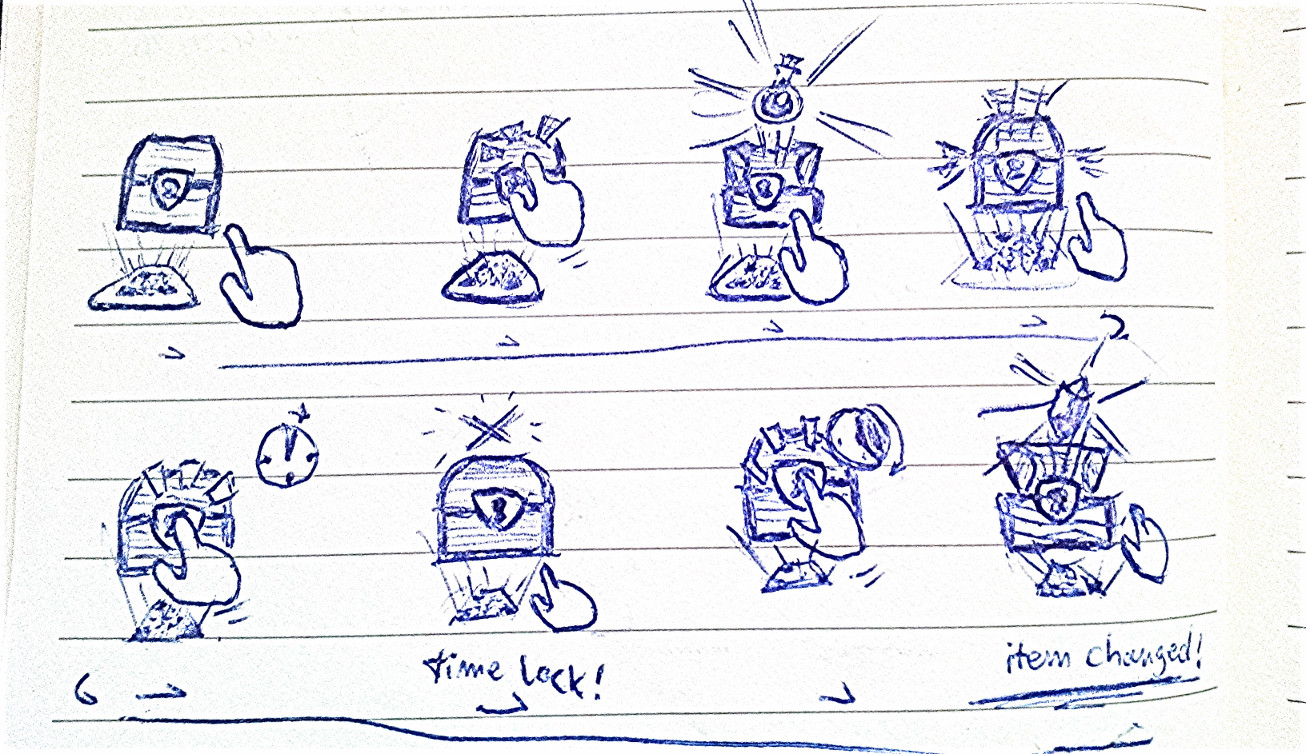 6
time lock!
item changed!